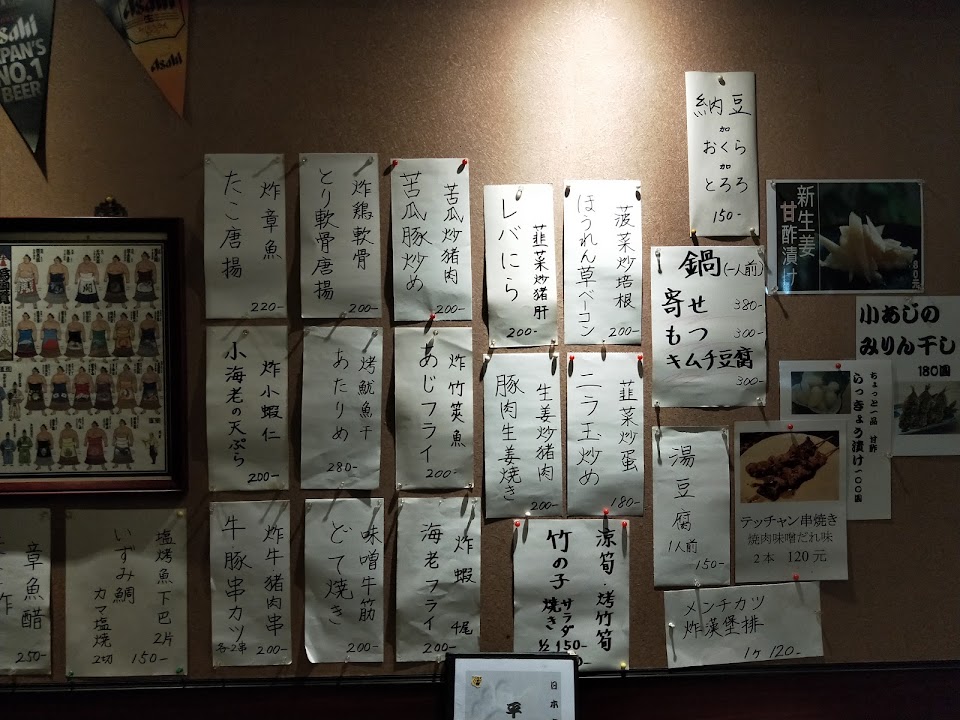 Asahi
JAPAN'S
NO.1
BEER
Asahi
生
Asahi
炸章魚
たこ唐揚
220-
炸鶏軟骨
とり軟骨唐揚
200-
苦瓜炒猪肉
苦瓜豚炒め
200-
韮菜炒猪肝
レバにら
200-
菠菜炒培根
ほうれん草ベーコン
200-
納豆
加
おくら
加
とろろ
150-
新生姜
甘酢漬け
180元
鍋(一人前)
寄せ 380-
もつ 300-
キムチ豆腐
300-
小あじの
みりん干し
180圓
炸小蝦仁
小海老の天ぷら
200-
烤魷魚干
あたりめ
280-
炸竹筴魚
あじフライ
200-
生姜炒猪肉
豚肉生姜焼き
200-
韮菜炒蛋
ニラ玉炒め
180-
湯豆腐
1人前
150-
ちょっと一品 甘酢
らっきょう漬け一00圓
テッチャン串焼き
焼肉味噌だれ味
2本 120元
章魚醋
250-
塩烤魚下巴
2片
いずみ鯛
カマ塩焼
2切 150-
炸牛猪肉串
牛豚串カツ
各2串 200-
味噌牛筋
どて焼き
200-
炸蝦
4尾
海老フライ
200-
涼筍·烤竹筍
竹の子
サラダ 150-
焼き 1/2
メンチカツ
炸漢堡排
1ケ 120-
日本
平